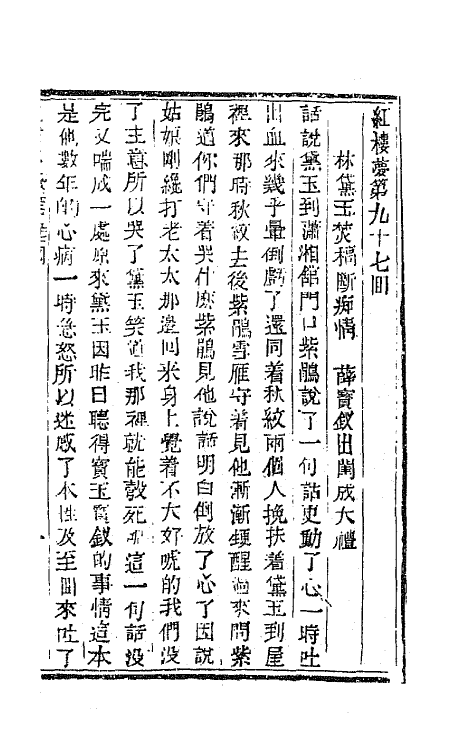 紅樓夢第九十七回
林黛玉焚稿斷痴情　薛寶釵出閨成大禮
話說黛玉到瀟湘館門口紫鵑說了一句話更動了心一時吐
出血來幾乎暈倒虧了還同着秋紋兩個人挽扶着黛玉到屋
裡來那時秋紋去後紫鵑雪雁守着見他漸漸甦醒過來問紫
鵑道你們守着哭什麽紫鵑見他說話明白倒放了心了因說
姑娘剛纔打老太太那邊回來身上覺着不大好唬的我們沒
了主意所以哭了黛玉笑道我那裡就能彀死呢這一句話沒
完又喘成一處原來黛玉因昨日聽得寶玉寶釵的事情這本
是他數年的心病一時急怒所以迷惑了本性及至回來吐了